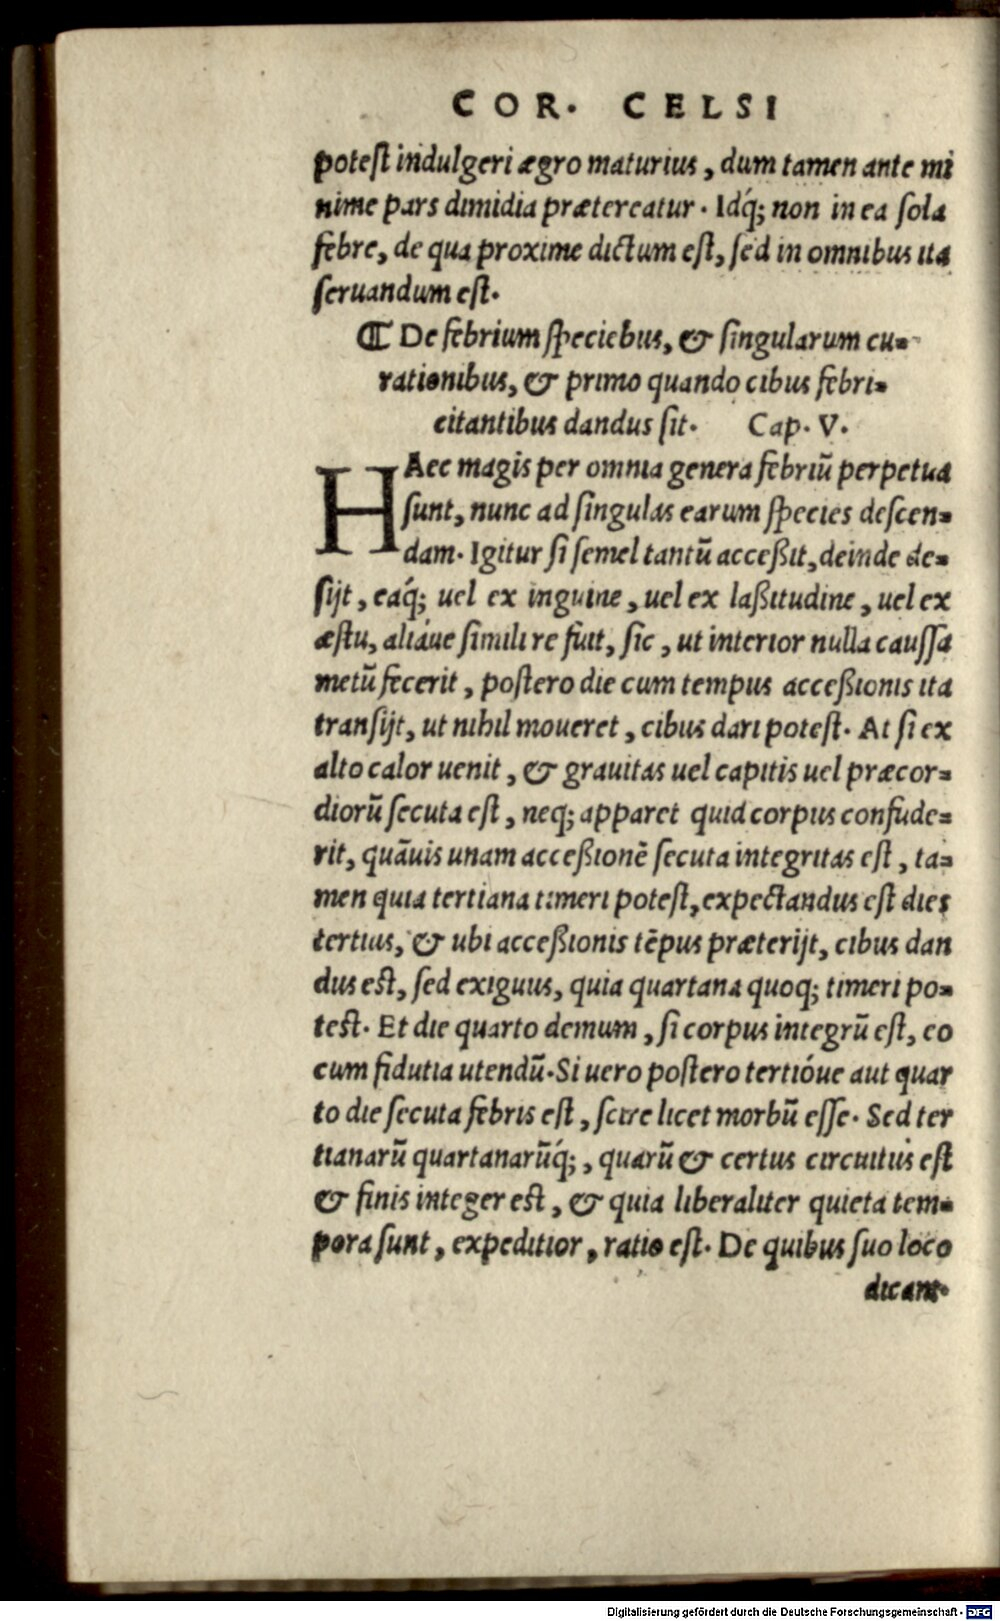 COR. CELSI
poteſt indulgeri ægro maturius, dum tamen ante mi
nime pars dimidia prætereatur. Idq́; non in ea ſola
febre, de qua proxime dictum eſt, ſed in omnibus ita
ſeruandum eſt.
⸿ De febrium ſpeciebus, & ſingularum cu-
rationibus, & primo quando cibus febri-
citantibus dandus ſit. Cap. V.
HAec magis per omnia genera febriũ perpetua
ſunt, nunc ad ſingulas earum ſpecies deſcen-
dam. Igitur ſi ſemel tantũ acceßit, deinde de-
ſijt, eaq́; uel ex inguine, uel ex laßitudine, uel ex
æſtu, aliáue ſimili re fuit, ſic, ut interior nulla cauſſa
metũ fecerit, poſtero die cum tempus acceßionis ita
tranſijt, ut nihil moueret, cibus dari poteſt. At ſi ex
alto calor uenit, & grauitas uel capitis uel præcor-
diorũ ſecuta eſt, neq; apparet quid corpus confude-
rit, quãuis unam acceßionẽ ſecuta integritas eſt, ta-
men quia tertiana timeri poteſt, expectandus eſt dies
tertius, & ubi acceßionis tẽpus præterijt, cibus dan
dus eſt, ſed exiguus, quia quartana quoq; timeri po-
teſt. Et die quarto demum, ſi corpus integrũ eſt, eo
cum fidutia utendũ. Si uero poſtero tertióue aut quar
to die ſecuta febris eſt, ſcire licet morbũ eſſe. Sed ter
tianarũ quartanarũq́;, quarũ & certus circuitus eſt
& finis integer eſt, & quia liberaliter quieta tem-
pora ſunt, expeditior, ratio eſt. De quibus ſuo loco
dicam.
Digitalisierung gefördert durch die Deutsche Forschungsgemeinschaft - DFG